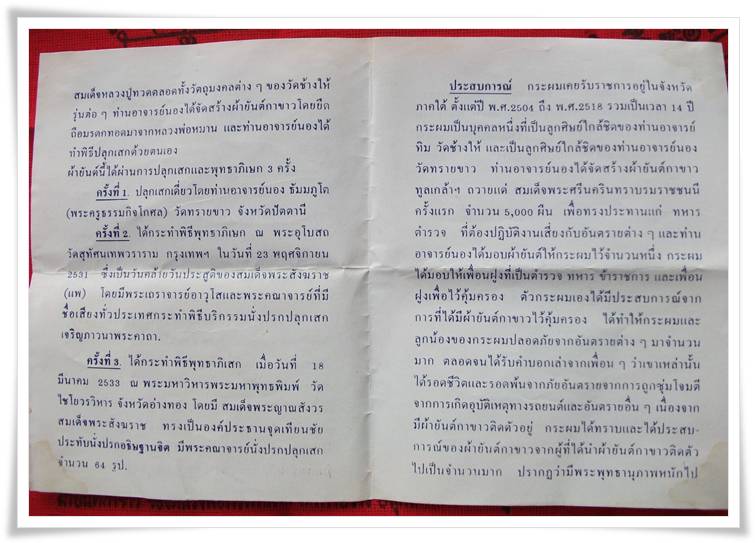 สมเด็จหลวงปู่ทวดตลอดทั้งวัตถุมงคลต่าง ๆ ของวัดช้างให้
รุ่นต่อ ๆ ท่านอาจารย์นองได้จัดสร้างผ้ายันต์กาขาวโดยยึด
ถือมรดกทอดมาจากหลวงพ่อหมาน และท่านอาจารย์นองได้
ทำพิธีปลุกเสกด้วยตนเอง
ผ้ายันต์นี้ได้ผ่านการปลุกเสกและพุทธาภิเษก 3 ครั้ง
ครั้งที่ 1. ปลุกเสกเดี่ยวโดยท่านอาจารย์นอง ธัมมภูโต
(พระครูธรรมกิจโกศล) วัดทรายขาว จังหวัดปัตตานี
ครั้งที่ 2. ได้กระทำพิธีพุทธาภิเษก ณ พระอุโบสถ
วัดสุทัศนเทพวราราม กรุงเทพฯ ในวันที่ 23 พฤศจิกายน
2531 ซึ่งเป็นวันคล้ายวันประสูติของสมเด็จพระสังฆราช
(แพ) โดยมีพระเถราจารย์อาวุโสและพระคณาจารย์ที่มี
ชื่อเสียงทั่วประเทศกระทำพิธีบริกรรมนั่งปรกปลุกเสก
เจริญภาวนาพระคาถา.
ครั้งที่ 3. ได้กระทำพิธีพุทธาภิเสก เมื่อวันที่ 18
มีนาคม 2533 ณ พระมหาวิหารพระมหาพุทธพิมพ์ วัด
ไชโยวรวิหาร จังหวัดอ่างทอง โดยมี สมเด็จพระญาณสังวร
สมเด็จพระสังฆราช ทรงเป็นองค์ประธานจุดเทียนชัย
ประทับนั่งปรกอธิษฐานจิต มีพระคณาจารย์นั่งปรกปลุกเสก
จำนวน 64 รูป.
ประสบการณ์ กระผมเคยรับราชการอยู่ในจังหวัด
ภาคใต้ ตั้งแต่ปี พ.ศ.2504 ถึง พ.ศ.2518 รวมเป็นเวลา 14 ปี
กระผมเป็นบุคคลหนึ่งที่เป็นลูกศิษย์ใกล้ชิดของท่านอาจารย์
ทิม วัดช้างให้ และเป็นลูกศิษย์ใกล้ชิดของท่านอาจารย์นอง
วัดทรายขาว ท่านอาจารย์นองได้จัดสร้างผ้ายันต์กาขาว
ทูลเกล้าฯ ถวายแด่ สมเด็จพระศรีนครินทราบรมราชชนนี
ครั้งแรก จำนวน 5,000 ผืน เพื่อทรงประทานแก่ ทหาร
ตำรวจ ที่ต้องปฏิบัติงานเสี่ยงกับอันตรายต่าง ๆ และท่าน
อาจารย์นองได้มอบผ้ายันต์ให้กระผมไว้จำนวนหนึ่ง กระผม
ได้มอบให้เพื่อนฝูงที่เป็นตำรวจ ทหาร ข้าราชการ และเพื่อน
ฝูงเพื่อไว้คุ้มครอง ตัวกระผมเองได้มีประสบการณ์จาก
การที่ได้มีผ้ายันต์กาขาวไว้คุ้มครอง ได้ทำให้กระผมและ
ลูกน้องของกระผมปลอดภัยจากอันตรายต่าง ๆ มาจำนวน
มาก ตลอดจนได้รับคำบอกเล่าจากเพื่อน ๆ ว่าเขาเหล่านั้น
ได้รอดชีวิตและรอดพ้นจากภัยอันตรายจากการถูกซุ่มโจมตี
จากการเกิดอุบัติเหตุทางรถยนต์และอันตรายอื่น ๆ เนื่องจาก
มีผ้ายันต์กาขาวติดตัวอยู่ กระผมได้ทราบและได้ประสบ-
การณ์ของผ้ายันต์กาขาวจากผู้ที่ได้นำผ้ายันต์กาขาวติดตัว
ไปเป็นจำนวนมาก ปรากฏว่ามีพระพุทธานุภาพหนักไป